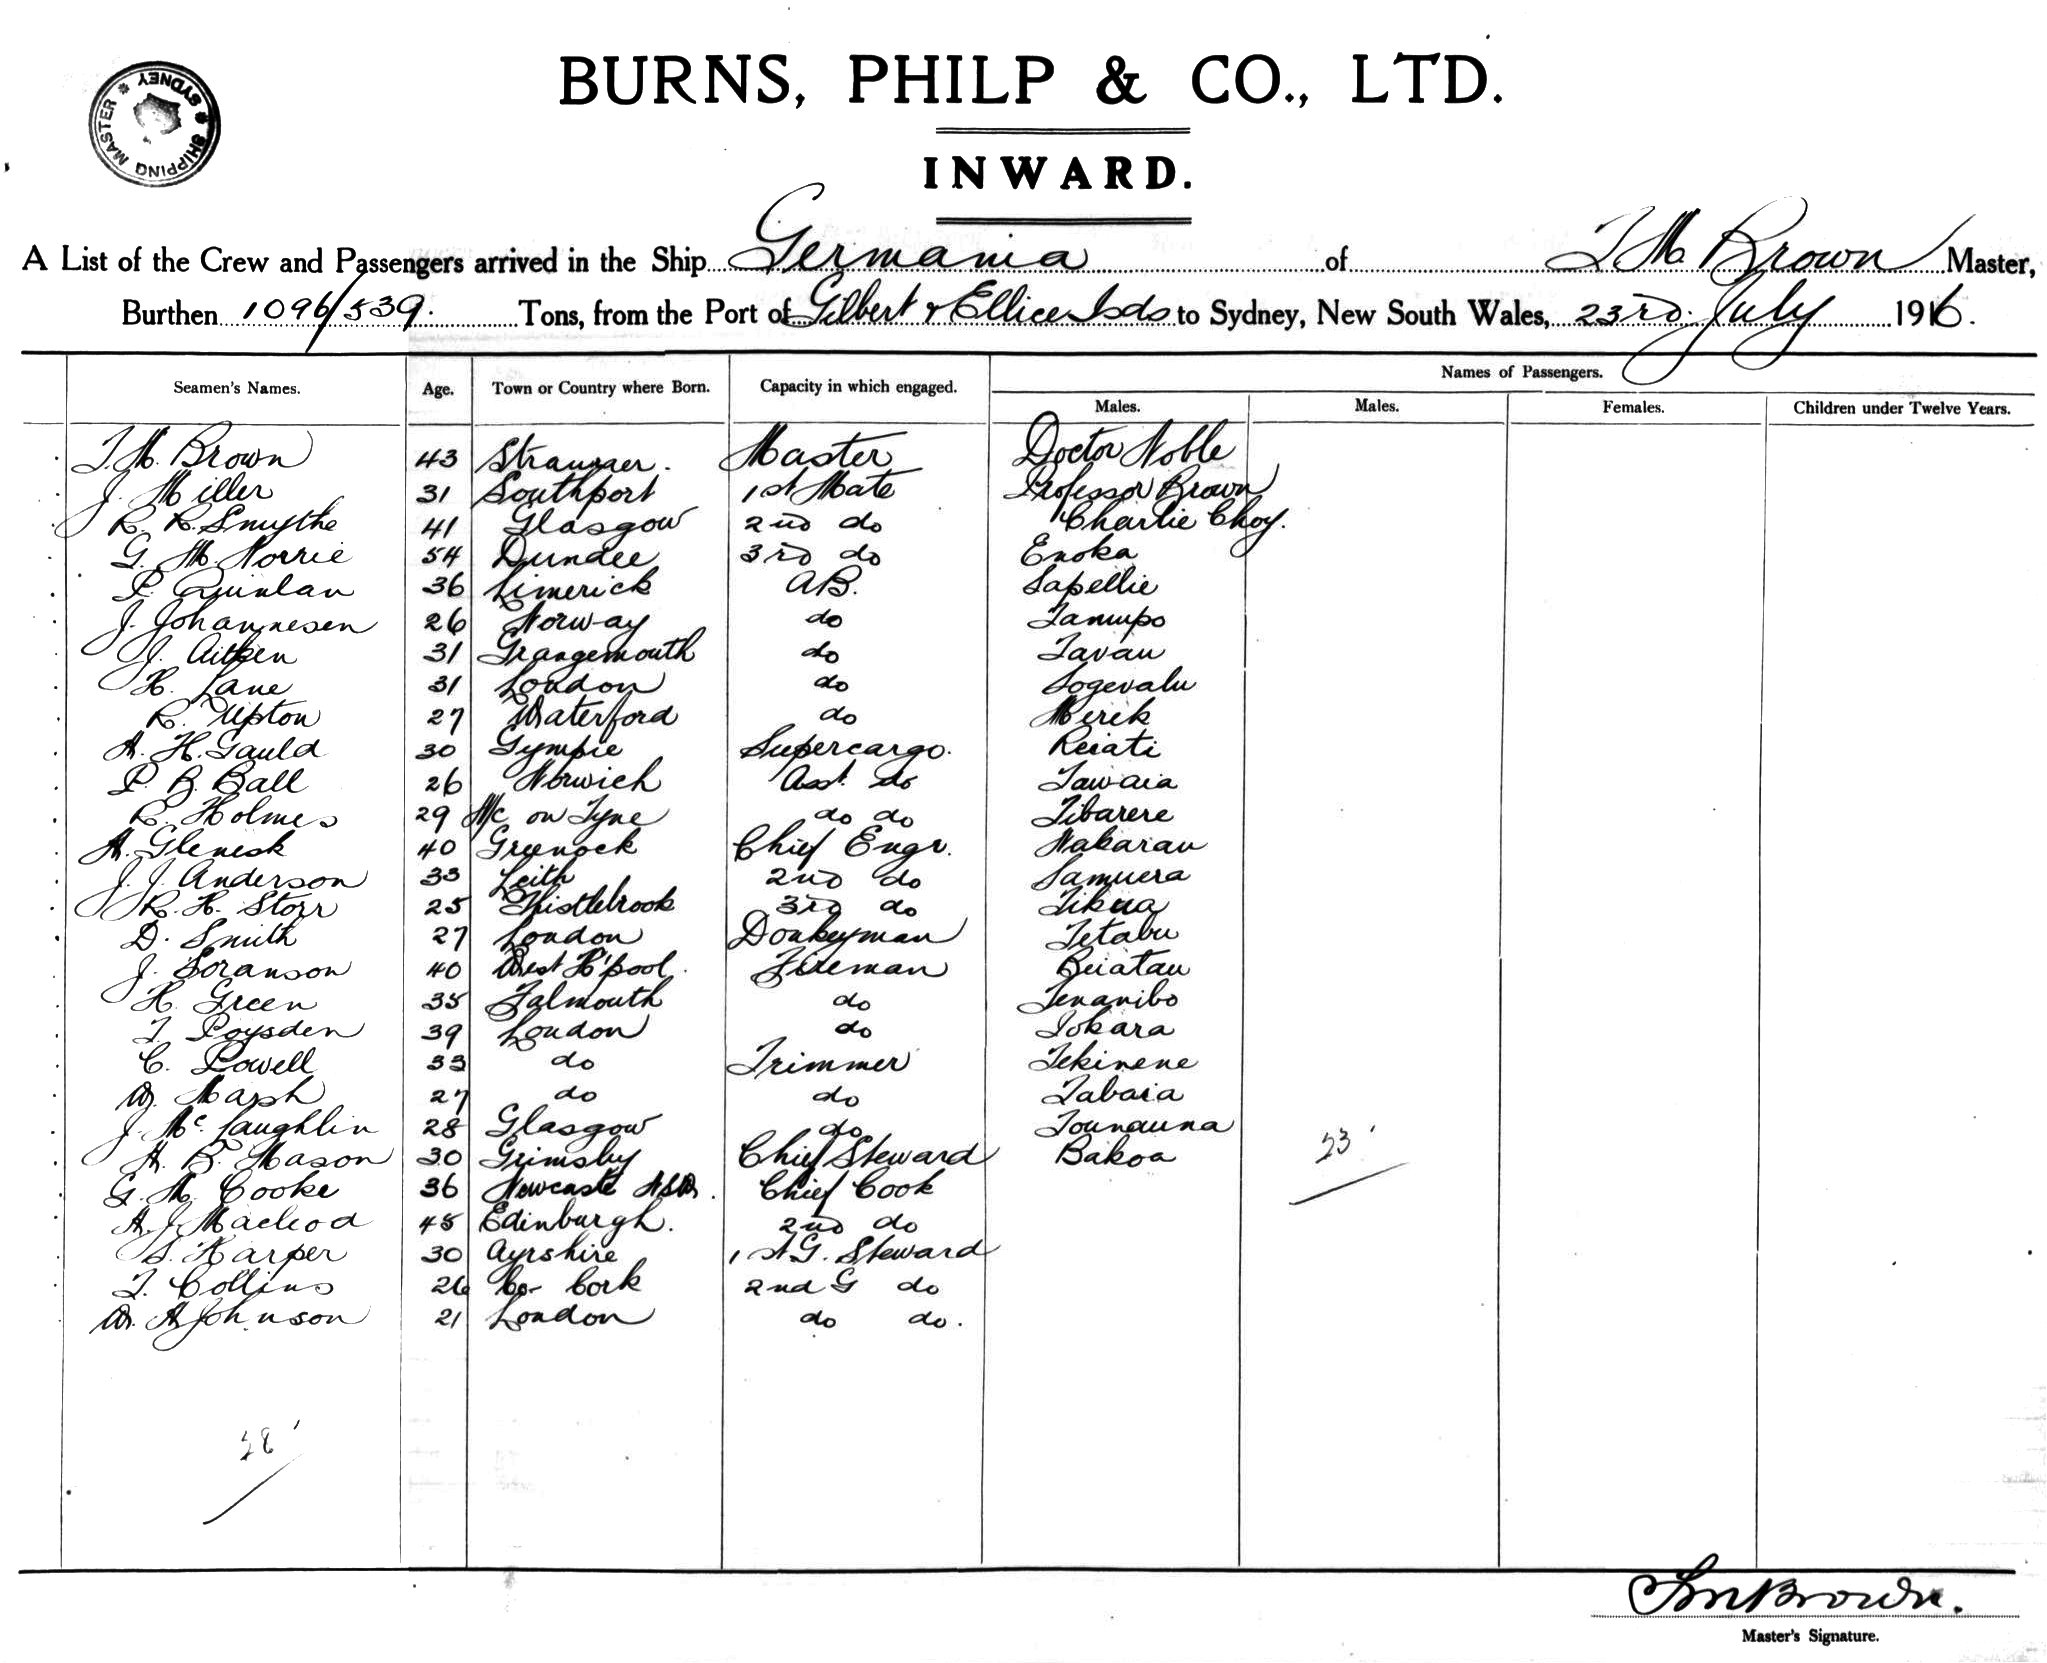 SHIPPING MASTER * SYDNEY *
BURNS, PHILP & CO., LTD.
INWARD.
A List of the Crew and Passengers arrived in the Ship Germania of T M Brown Master,
Burthen 1096/539. Tons, from the Port of Gilbert & Ellice Isds to Sydney, New South Wales, 23rd July 1916.
Seamen's Names. Age. Town or Country where Born. Capacity in which engaged. Names of Passengers.
Males. Males. Females. Children under Twelve Years.
T. M. Brown 43 Stranraer. Master Doctor Noble
J. Miller 31 Southport 1st Mate Professor Brown
R. R. Smythe 41 Glasgow 2nd do Charlie Choy.
G. M. Norrie 54 Dundee 3rd do Enoka
P. Quinlan 36 Limerick AB. Sapellie
J. Johannesen 26 Norway do
J. Aitken 31 Grangemouth do Tavau
H. Lane 31 London do Sogevalu
R. Upton 27 Waterford do Merek
A. H. Gauld 30 Gympie Supercargo. Reiati
P. B. Ball 26 Norwich Asst. do Tawaia
R. Holmes 29 N/c on Tyne do do Tibarere
A. Glenesk 40 Greenock Chief Engr. Nakarau
J. J. Anderson 33 Leith 2nd do Samuera
R. H. Storr 25 Thistlebrook 3rd do Tikua
D. Smith 27 London Donkeyman Tetabu
J. Soranson 40 West H'pool. Fireman Beiatau
H. Green 35 Falmouth do Tenanibo
T. Poysden 39 London do Tokara
C. Powell 33 do Trimmer Tekinene
W. Marsh 27 do do Tabaia
J. McLaughlin 28 Glasgow do Tounauna
A. B. Mason 30 Grimsby Chief Steward Bakoa 23
G. M. Cooke 36 Newcastle NSW. Chief Cook
A. J. Macleod 45 Edinburgh. 2nd do
S. Harper 30 Ayrshire 1st G. Steward
T. Collins 26 Co. Cork 2nd G do
W. A Johnson 21 London do do.
28
T M Brown.
Master's Signature.